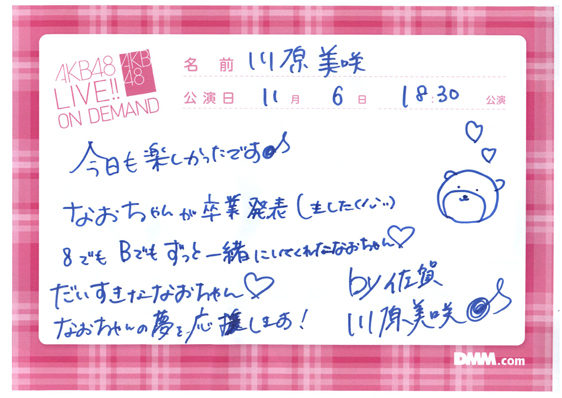 AKB48
LIVE!!
ON DEMAND
AKB
48
名前 川原美咲
公演日 11月 6日 18:30 公演
今日も楽しかったです
なおちゃんが卒業発表しましたくん…)
8でもBでもずっと一緒にいてくれたなおちゃん♡
だいすきななおちゃん♡
なおちゃんの夢を応援しまあ!
by 佐賀
川原美咲
DMM.com